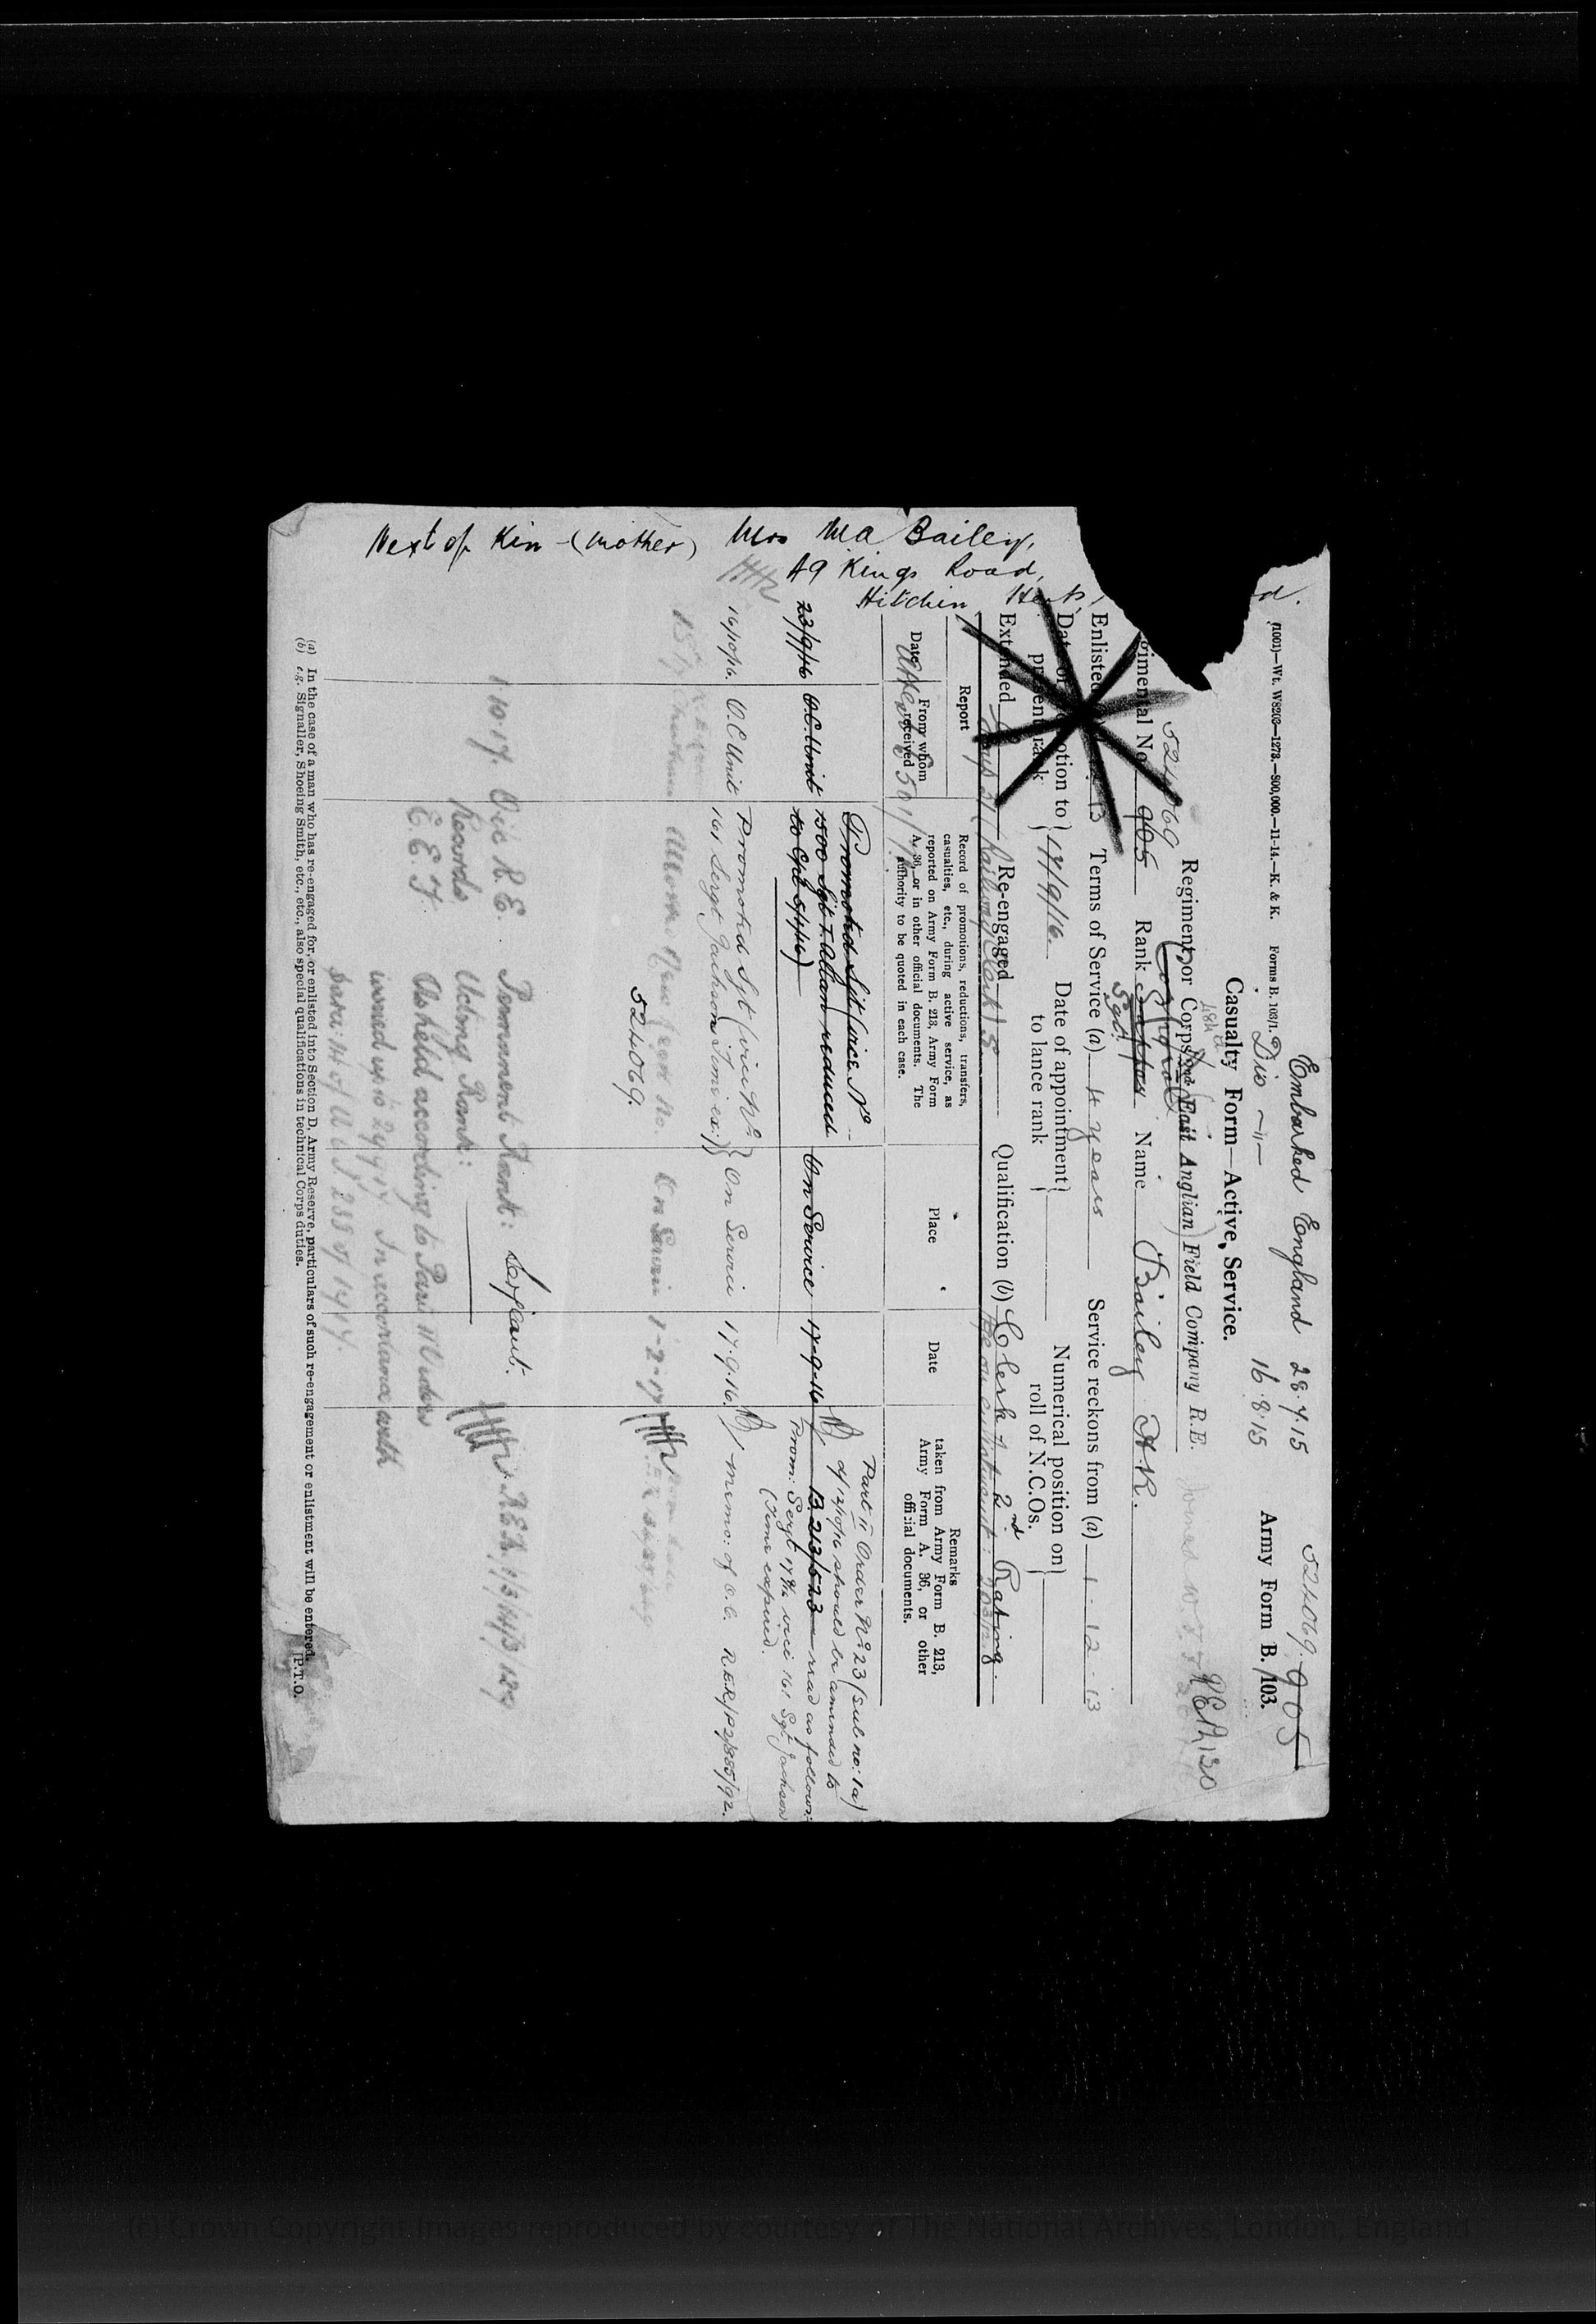 Embarked England 28.4.15
Dis —"— 16.8.15
524069. 905
(1001)—Wt. W8203—1273.—800,000.—11-14.—K. & K. Forms B. 103/1.
Army Form B. 103.
Casualty Form—Active Service.
Regiment or Corps East Anglian Field Company R.E.
RER/130
524069
gimental No. 905 Rank Sapper Name Bailey A.R.
Corporal
Sgt.
Enlisted 13 Terms of Service (a) 4 years Service reckons from (a) 1.12.13
Date of promotion to present rank } 17/9/16 Date of appointment to lance rank } Numerical position on roll of N.C.Os. }
Extended Re-engaged Qualification (b) Clerk 2nd Rating.
(Railway Clerk)
Report
Date From whom received
Record of promotions, reductions, transfers, casualties, etc., during active service, as reported on Army Form B. 213, Army Form A. 36, or in other official documents. The authority to be quoted in each case.
Place
Date
Remarks taken from Army Form B. 213, Army Form A. 36, or other official documents.
23/9/16 O.C. Unit Promoted Sgt (vice No 1500 Sgt T. Allan reduced to Cpl 5/4/16) On Service 17-9-16 B.213/523
Part II Order No 23 (sub no: 1a)
d/ 12/10/16 should be amended to
read as follows:
Prom: Sergt 17/9/16 vice 161 Sgt. Jackson
(time expired.
14/10/16. O.C Unit Promoted Sgt (vice No. 161 Sergt Jackson Time ex:) On Service 17.9.16. memo: of O.C. RER/P2/385/92.
New No. On Service 1-2-17
524069.
1.10.17. O i/c R.E. Records E.E.F. Permanent Rank: Sergeant.
Acting Rank:
As held according to Part II Orders
issued up to 29.9.17. In accordance with
Para: 4 of A.C.I. 1917.
(a) In the case of a man who has re-engaged for, or enlisted into Section D. Army Reserve, particulars of such re-engagement or enlistment will be entered.
(b) e.g. Signaller, Shoeing Smith, etc., etc., also special qualifications in technical Corps duties.
[P.T.O.
Next of Kin - (Mother) Mrs M A Bailey,
49 Kings Road,
Hitchin Herts,
(c) Crown Copyright Images reproduced by courtesy of The National Archives, London, England